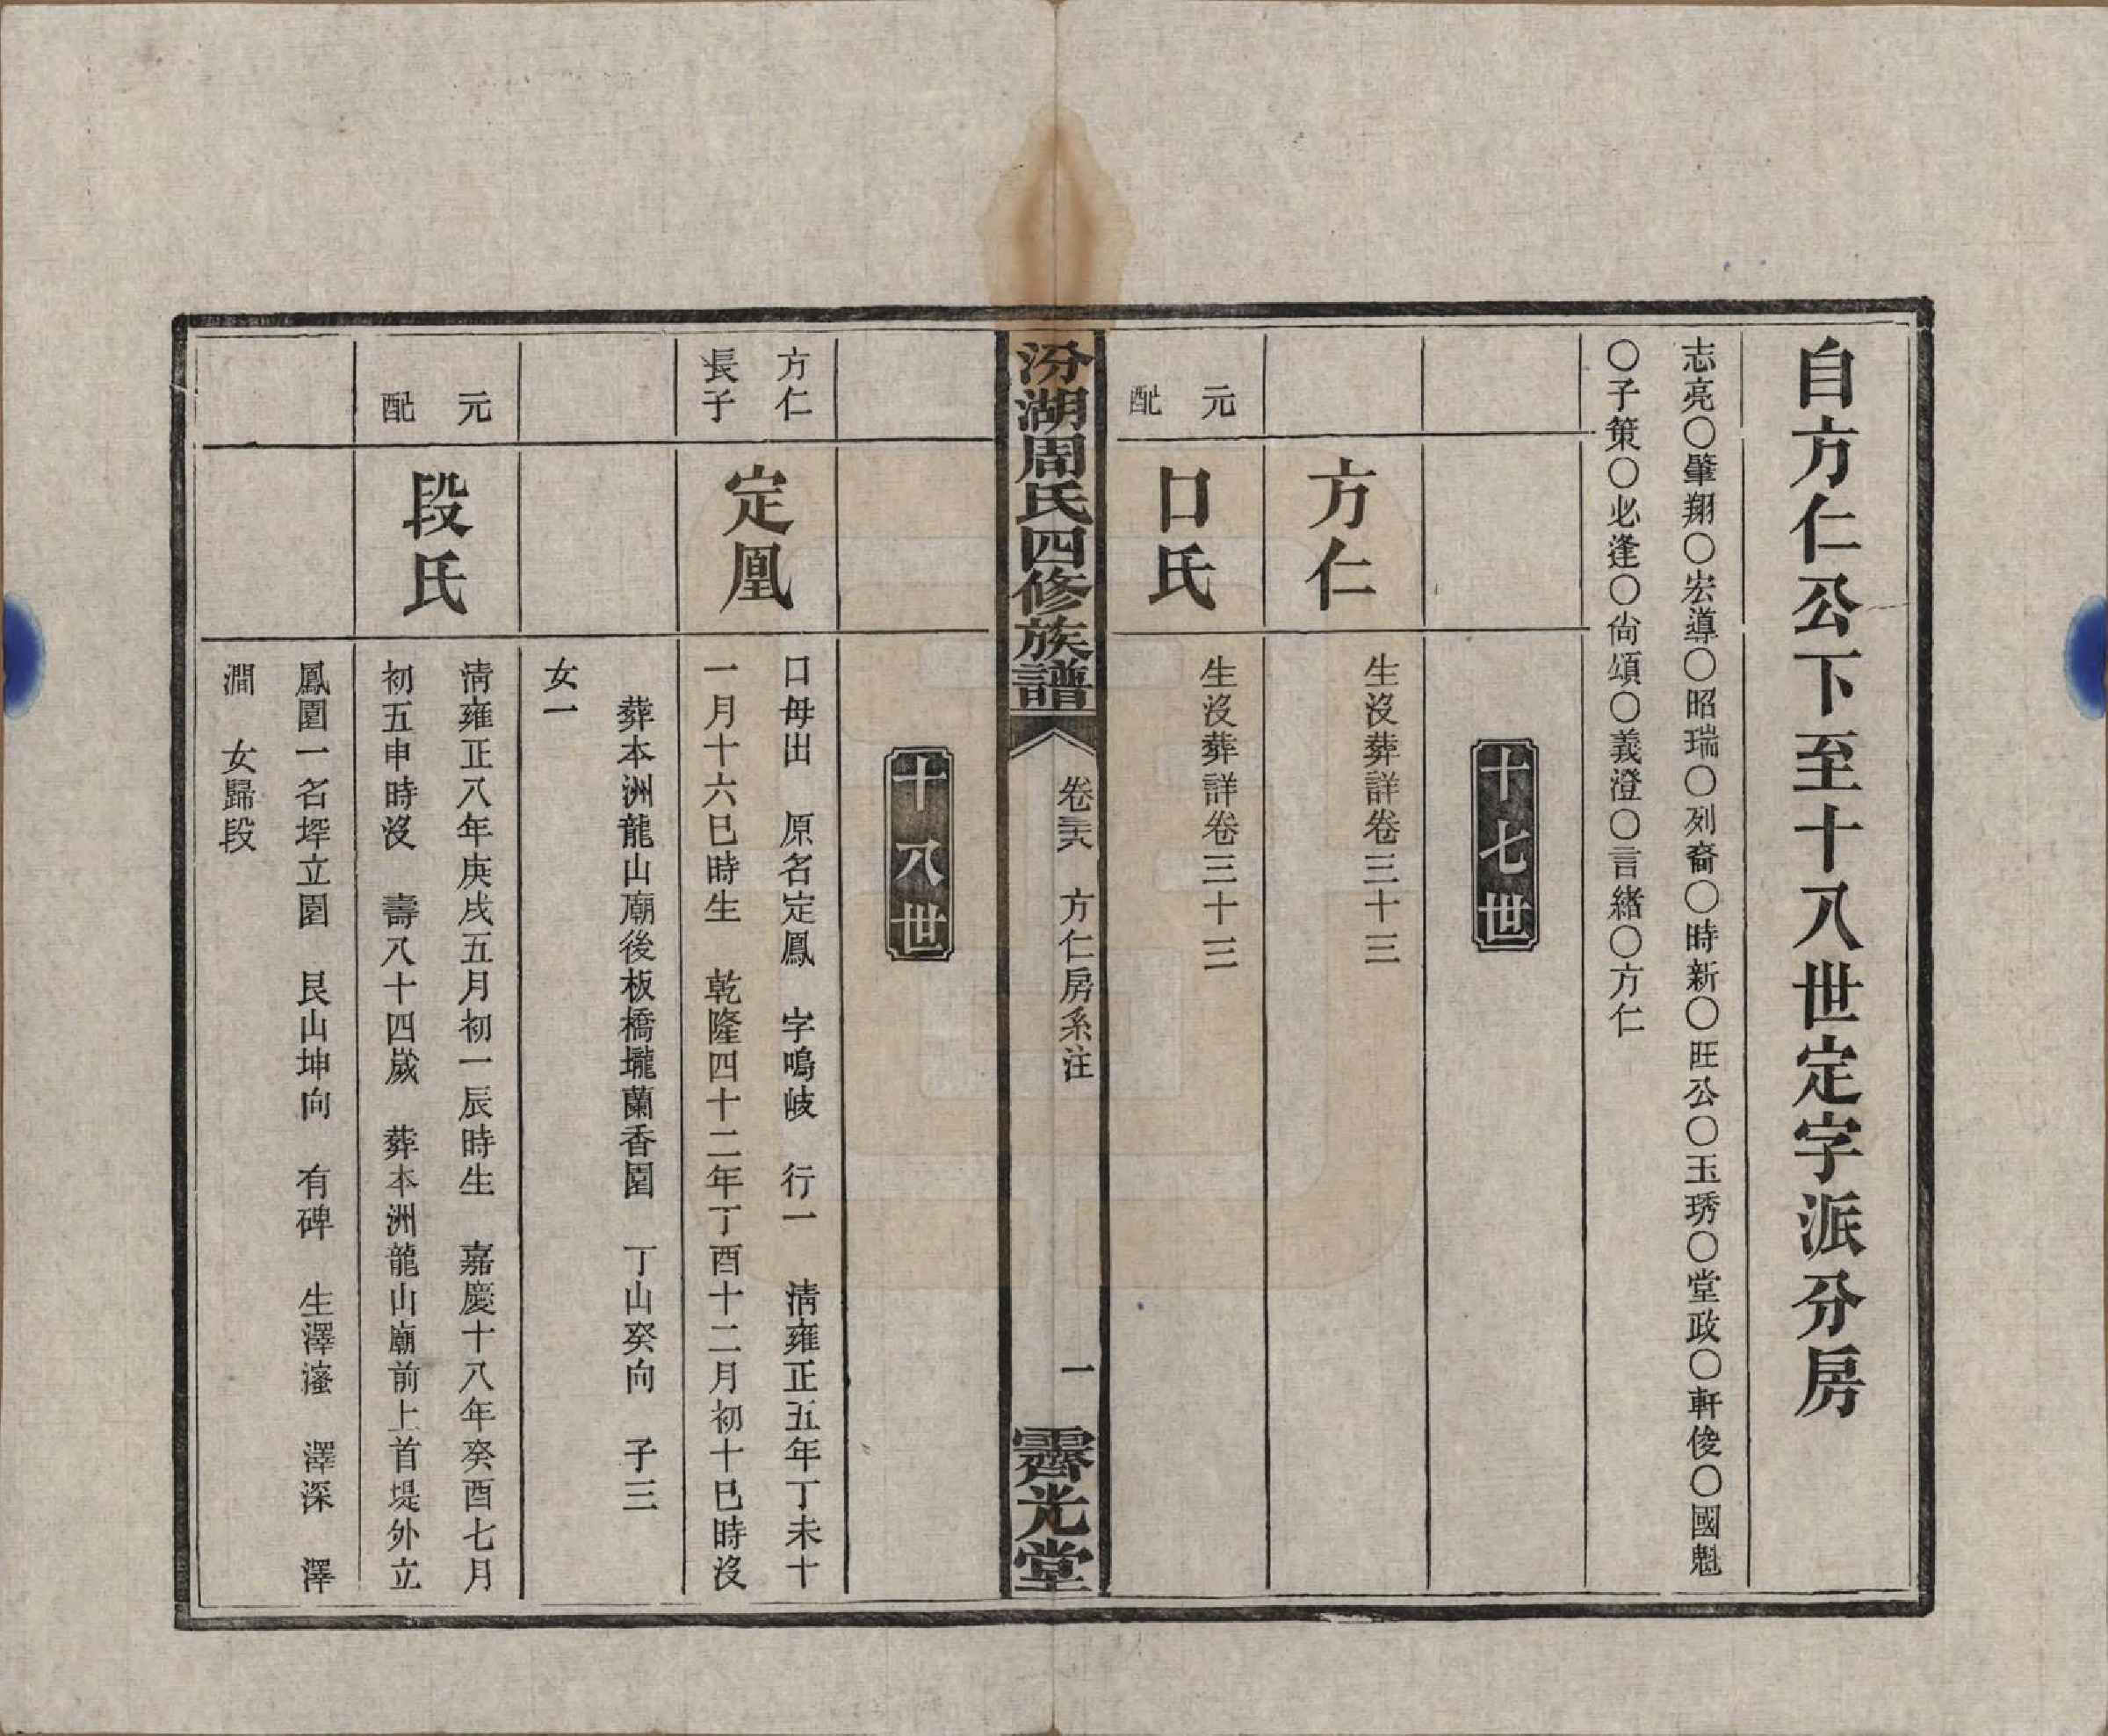 自方仁公下至十八世定字派分房
志亮〇肇翔〇宏導〇昭瑞〇列裔〇時新〇旺公〇玉琇〇堂政〇軒俊〇國魁
〇子策〇必逢〇尙頌〇義澄〇言緒〇方仁
十七世
方仁
生沒葬詳卷三十三
元配
口氏
生沒葬詳卷三十三
汾湖周氏四修族譜
卷三六
方仁房系注
一
霽光堂
十八世
方仁
長子
定凰
口母出 原名定鳳 字鳴岐 行一 淸雍正五年丁未十
一月十六巳時生 乾隆四十二年丁酉十二月初十巳時沒
葬本洲龍山廟後板橋壠蘭香園 丁山癸向 子三
女一
元配
段氏
淸雍正八年庚戌五月初一辰時生 嘉慶十八年癸酉七月
初五申時沒 壽八十四歲 葬本洲龍山廟前上首堤外立
鳳園一名垾立園 艮山坤向 有碑 生澤 澤深 澤
澗 女歸段